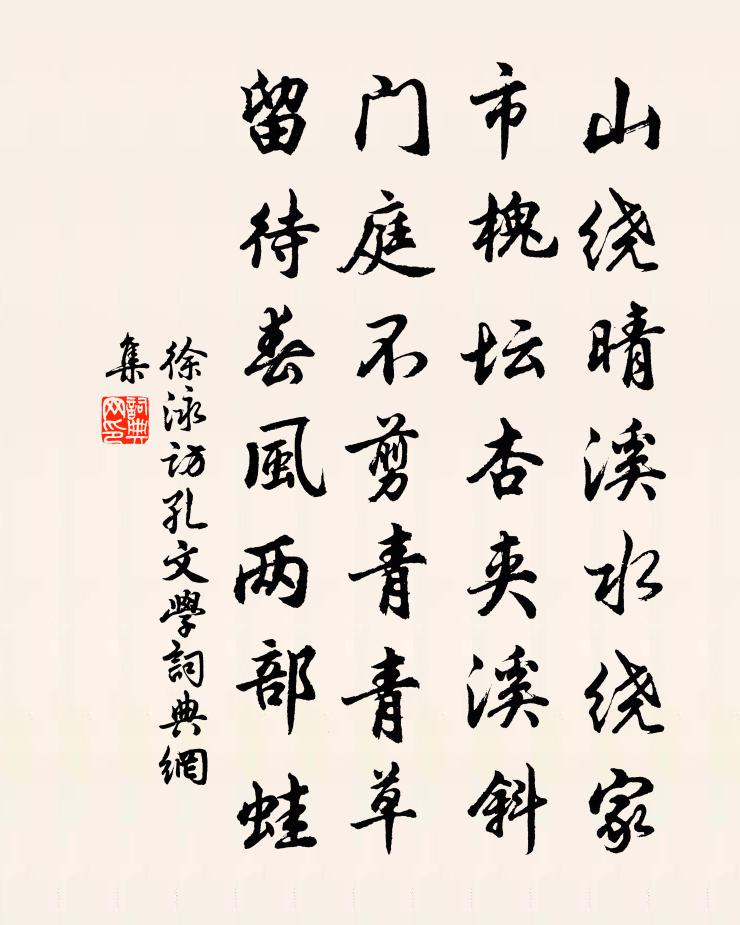 山绕晴溪水绕家
市槐坛杏夹溪斜
门庭不剪青青草
留待春風两部蛙
徐泳访孔文學詞典網
集
詞典
网印